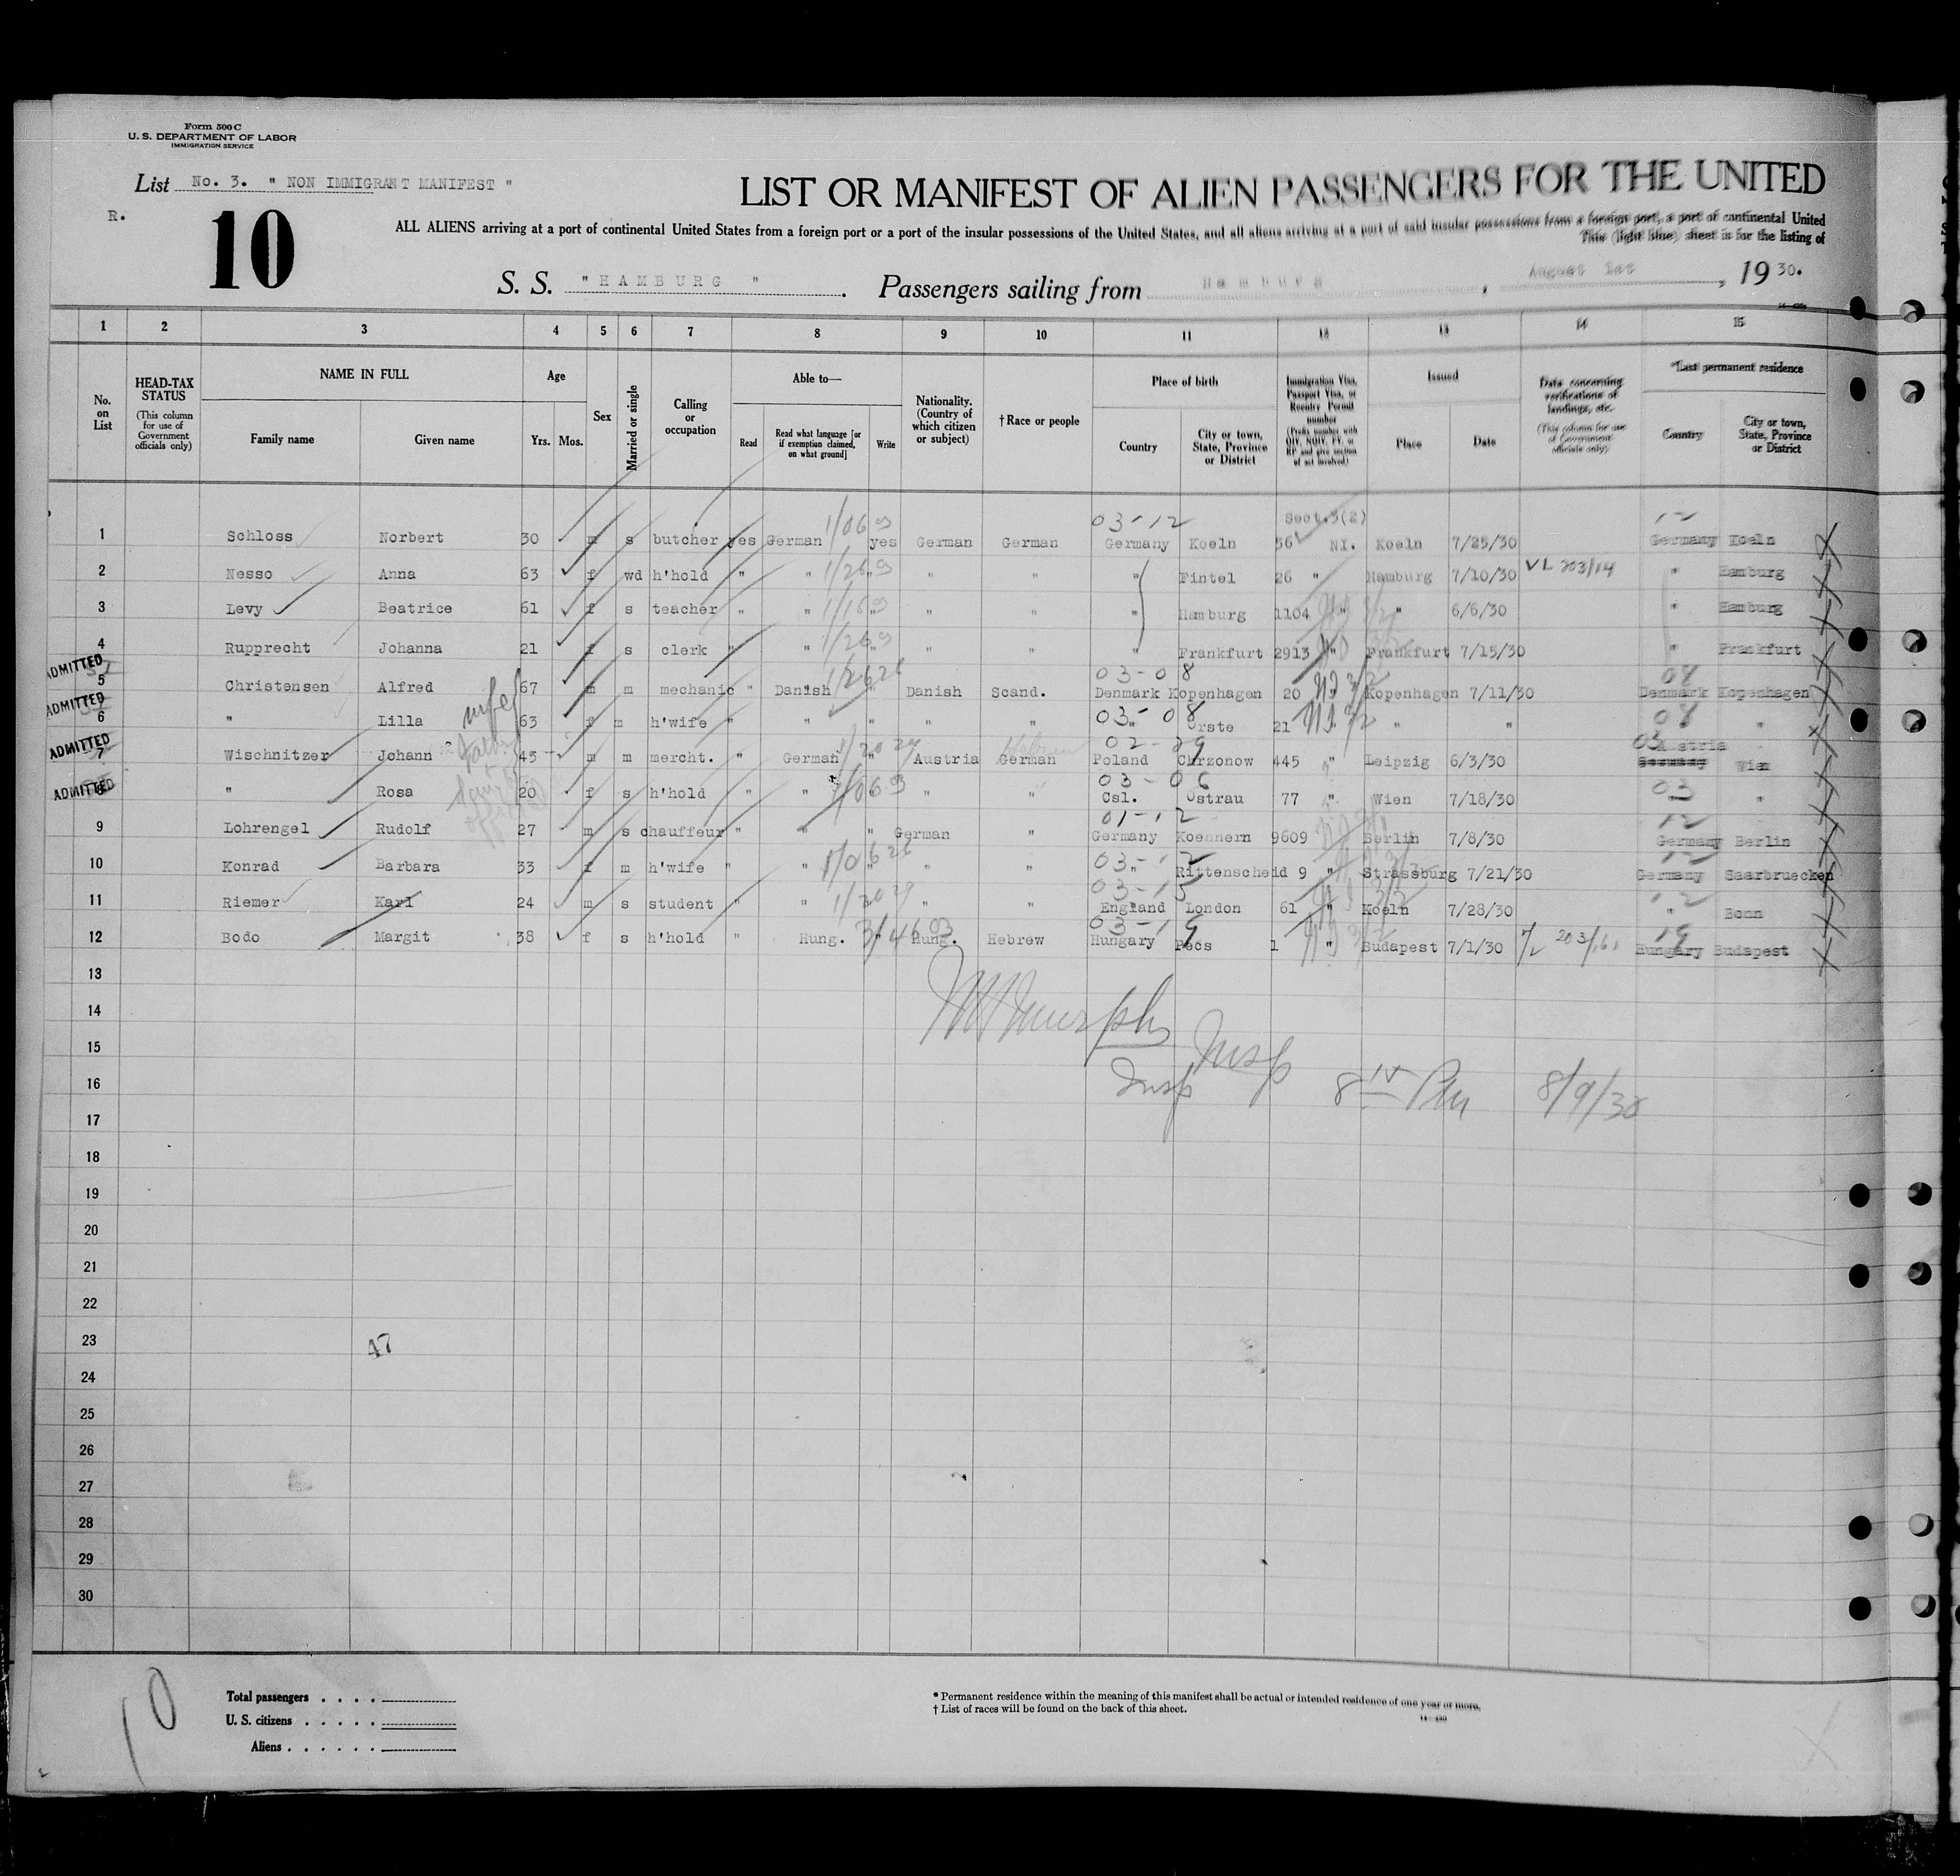 Form 500 C
U. S. DEPARTMENT OF LABOR
IMMIGRATION SERVICE
List No. 3. " NON IMMIGRANT MANIFEST "
R.
10
LIST OR MANIFEST OF ALIEN PASSENGERS FOR THE UNITED
ALL ALIENS arriving at a port of continental United States from a foreign port or a port of the insular possessions of the United States, and all aliens arriving at a port of said insular possessions from a foreign port, a port of continental United
This (light blue) sheet is for the listing of
S. S. " HAMBURG " . Passengers sailing from Hamburg , August 1st , 19 30.
1 2 3 4 5 6 7 8 9 10 11 12 13 14 15
No. on List
HEAD-TAX STATUS (This column for use of Government officials only)
NAME IN FULL
Family name Given name
Age
Yrs. Mos.
Sex
Married or single
Calling or occupation
Able to—
Read Read what language [or if exemption claimed, on what ground] Write
Nationality. (Country of which citizen or subject)
†Race or people
Place of birth
Country City or town, State, Province or District
Immigration Visa, Passport Visa, or Reentry Permit number (Prefix number with QIV, NQIV, PV, or RP and give section of act involved)
Issued
Place Date
Data concerning verifications of landings, etc. (This column for use of Government officials only)
*Last permanent residence
Country City or town, State, Province or District
1/06 03 03-12 Sect.3(2) 12
1 Schloss Norbert 30 m s butcher yes German yes German German Germany Koeln 56 NI. Koeln 7/25/30 Germany Koeln
2 Nesso Anna 63 f wd h'hold " " " " " " Fintel 26 " Hamburg 7/10/30 VL 203/14 " Hamburg
3 Levy Beatrice 61 f s teacher " " " " " " Hamburg 1104 " " 6/6/30 " Hamburg
4 Rupprecht Johanna 21 f s clerk " " " " " " Frankfurt 2913 " Frankfurt 7/15/30 " Frankfurt
ADMITTED
03-08 08
5 Christensen Alfred 67 m m mechanic " Danish " Danish Scand. Denmark Kopenhagen 20 Kopenhagen 7/11/30 Denmark Kopenhagen
ADMITTED
wife 03-08 08
6 " Lilla 63 f m h'wife " " " " " " Orste 21 " " " "
ADMITTED
02-29 03 Hebrew
7 Wischnitzer Johann 45 m m mercht. " German " Austria German Poland Chrzonow 445 " Leipzig 6/3/30 Austria Germany Wien
ADMITTED
03-06 03
8 " Rosa 20 f s h'hold " " " " " Csl. Ostrau 77 " Wien 7/18/30 " "
01-12 12
9 Lohrengel Rudolf 27 m s chauffeur " " " German " Germany Koennern 9609 Berlin 7/8/30 Germany Berlin
03-12 12
10 Konrad Barbara 33 f m h'wife " " " " " " Rittenscheid 9 " Strassburg 7/21/30 Germany Saarbruecken
03-15 12
11 Riemer Karl 24 m s student " " " " " England London 61 " Koeln 7/28/30 " Bonn
03-19 19
12 Bodo Margit 38 f s h'hold " Hung. " Hung. Hebrew Hungary Pecs 1 " Budapest 7/1/30 Hungary Budapest
13
14
15
Insp
16
Insp 8 8/9/30
17
18
19
20
21
22
23
47
24
25
26
27
28
29
30
10
Total passengers . . . .
U. S. citizens . . . . .
Aliens . . . . . .
* Permanent residence within the meaning of this manifest shall be actual or intended residence of one year or more.
† List of races will be found on the back of this sheet.